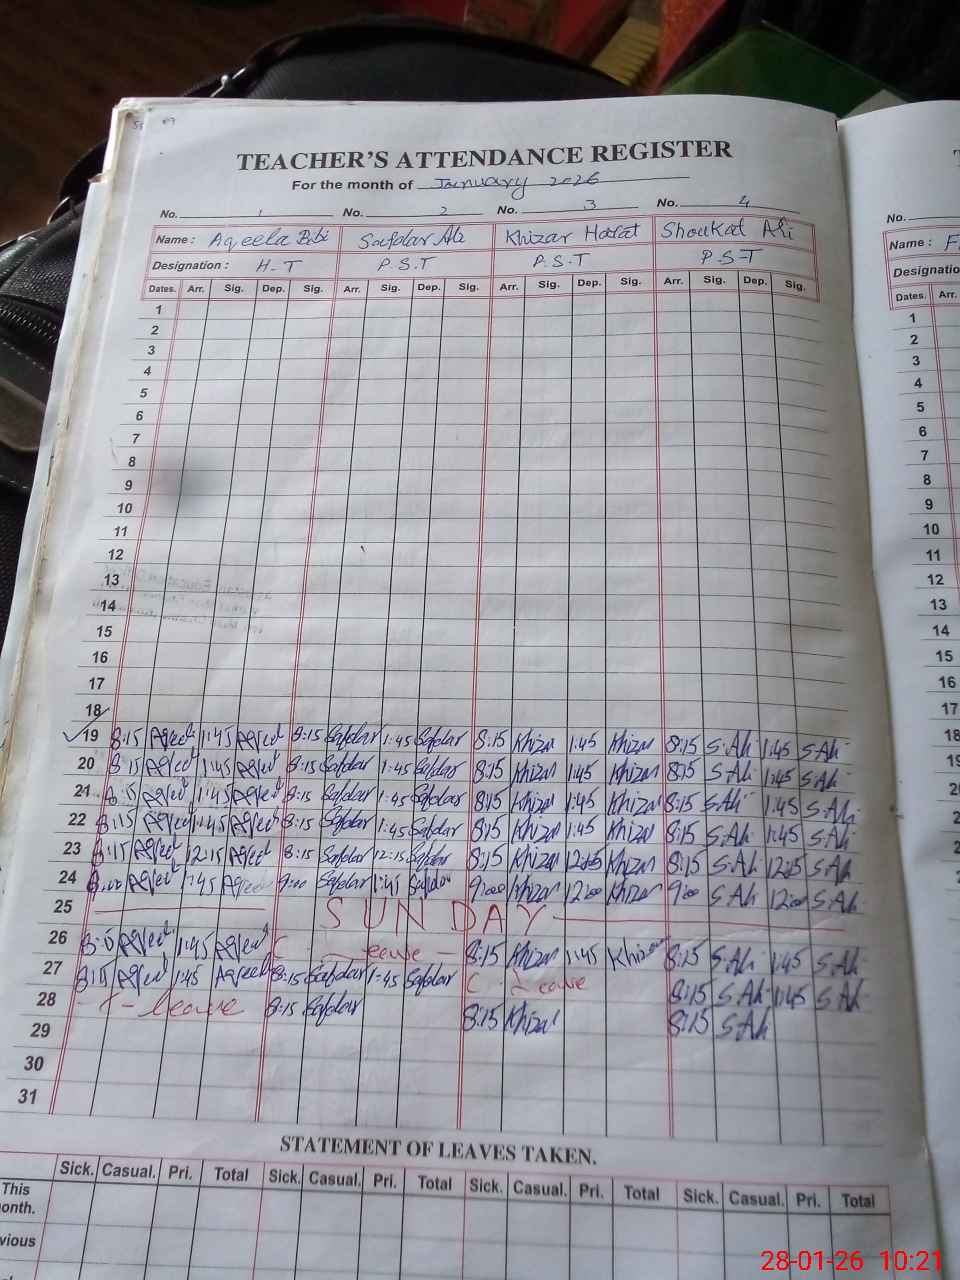 TEACHER'S ATTENDANCE REGISTER
For the month of January 2026
No. 1 No. 2 No. 3 No. 4
Name : Aqeela Bibi Safdar Ali Khizar Hayat Shoukat Ali
Designation : H-T P.S.T P.S.T P.S-T
Dates. Arr. Sig. Dep. Sig. Arr. Sig. Dep. Sig. Arr. Sig. Dep. Sig. Arr. Sig. Dep. Sig.
1
2
3
4
5
6
7
8
9
10
11
12
13
14
15
16
17
18
19 8:15 Aqeel 1:45 Aqeel 8:15 Safdar 1:45 Safdar 8:15 Khizar 1:45 Khizar 8:15 S.Ali 1:45 S.Ali
20 8:15 Aqeel 1:45 Aqeel 8:15 Safdar 1:45 Safdar 8:15 Khizar 1:45 Khizar 8:15 S.Ali 1:45 S.Ali
21 8:15 Aqeel 1:45 Aqeel 8:15 Safdar 1:45 Safdar 8:15 Khizar 1:45 Khizar 8:15 S.Ali 1:45 S.Ali
22 8:15 Aqeel 1:45 Aqeel 8:15 Safdar 1:45 Safdar 8:15 Khizar 1:45 Khizar 8:15 S.Ali 1:45 S.Ali
23 8:15 Aqeel 12:15 Aqeel 8:15 Safdar 12:15 Safdar 8:15 Khizar 12:15 Khizar 8:15 S.Ali 12:15 S.Ali
24 Aqeel 1:45 Aqeel 9:00 Safdar 1:45 Safdar 9:00 Khizar 12:00 Khizar 9:00 S.Ali 12:00 S.Ali
25 SUNDAY
26 Aqeel 1:45 Aqeel C Leave 8:15 Khizar 1:45 Khizar 8:15 S.Ali 1:45 S.Ali
27 8:15 Aqeel 1:45 Aqeel 8:15 Safdar 1:45 Safdar C - Leave 8:15 S.Ali 1:45 S.Ali
28 leave 8:15 Safdar 8:15 Khizar 8:15 S.Ali
29
30
31
STATEMENT OF LEAVES TAKEN.
Sick. Casual. Pri. Total Sick. Casual. Pri. Total Sick. Casual. Pri. Total Sick. Casual. Pri. Total
This
onth.
vious
No.
Name : F
Designatio
Dates. Arr.
1
2
3
4
5
6
7
8
9
10
11
12
13
14
15
16
17
18
19
28-01-26 10:21